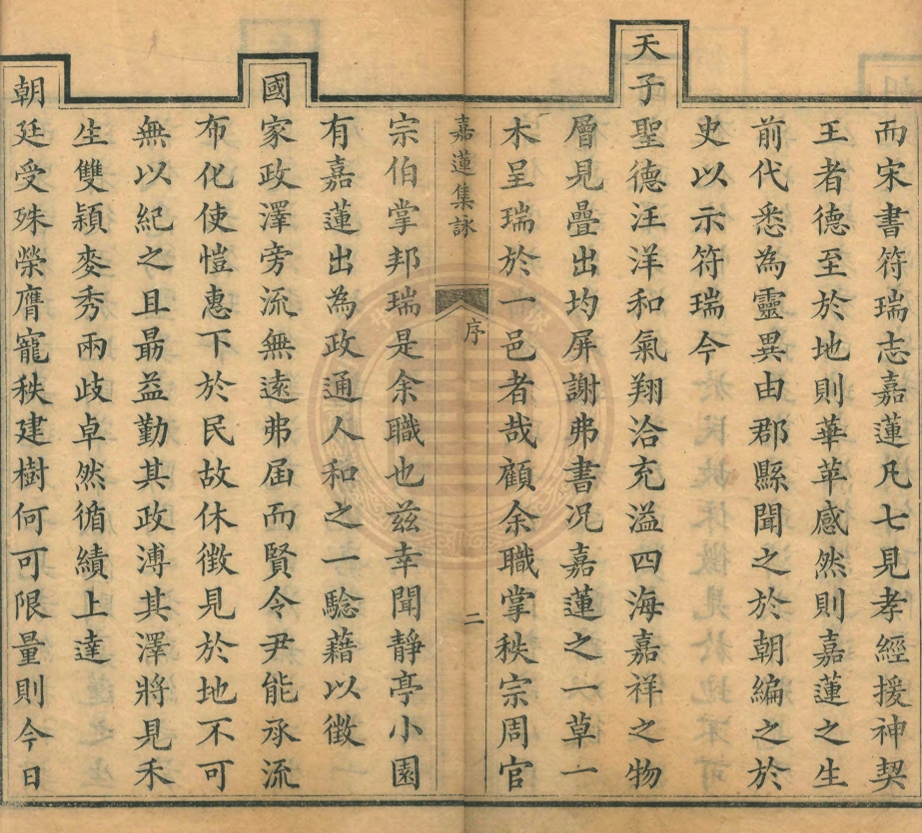 而宋書符瑞志嘉蓮凡七見孝經援神契
王者德至於地則華苹感然則嘉蓮之生
前代悉為靈異由郡縣聞之於朝編之於
史以示符瑞今
天子聖德汪洋和氣翔洽充溢四海嘉祥之物
層見疊出均屏謝弗書况嘉蓮之一草一
木呈瑞於一邑者哉顧余職掌秩宗周官
嘉蓮集詠 序 二
宗伯掌邦瑞是余職也茲幸聞靜亭小園
有嘉蓮出為政通人和之一驗藉以徵
國家政澤旁流無遠弗屆而賢令尹能承流
布化使愷惠下於民故休徵見於地不可
無以紀之且最益勤其政溥其澤將見禾
生雙穎麥秀兩歧卓然循績上達
朝廷受殊榮膺寵秩建樹何可限量則今日